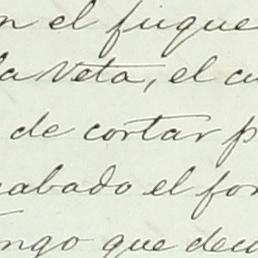 n el fuque
la Veta, el cu
de cortar p
cabado el fon
ngo que decu